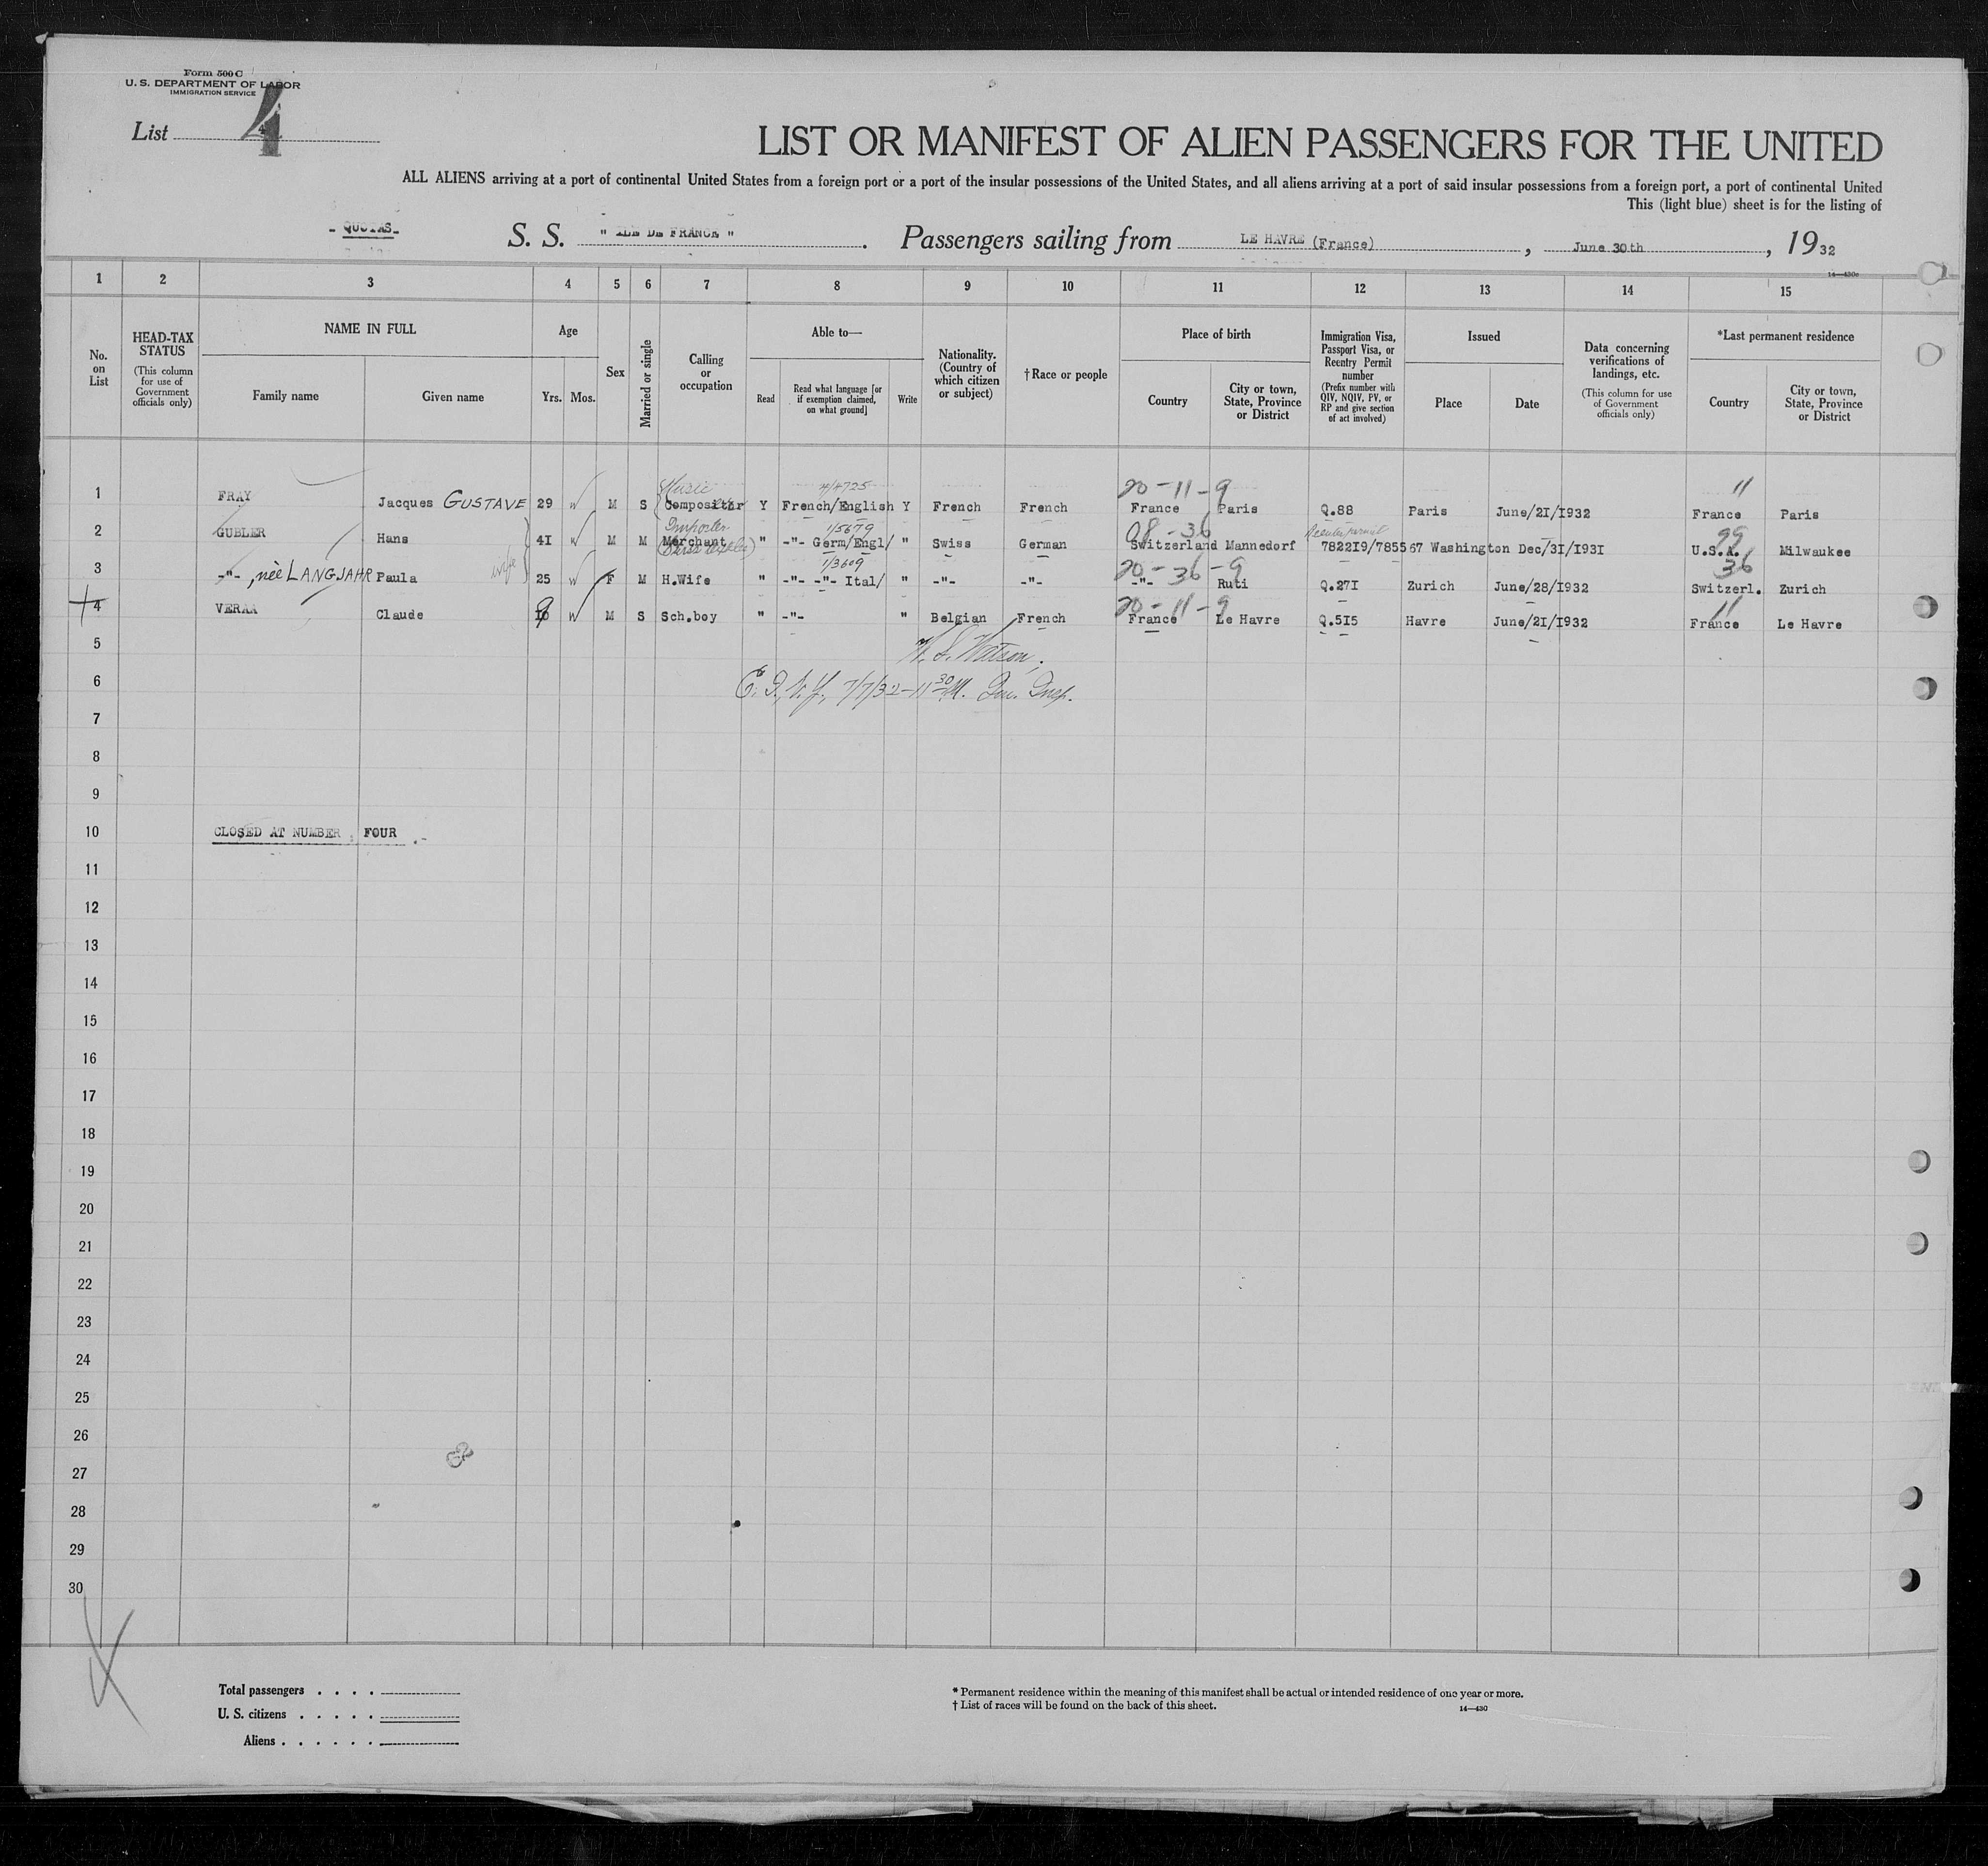 Form 500 C
U. S. DEPARTMENT OF LABOR
IMMIGRATION SERVICE
List 4
LIST OR MANIFEST OF ALIEN PASSENGERS FOR THE UNITED
ALL ALIENS arriving at a port of continental United States from a foreign port or a port of the insular possessions of the United States, and all aliens arriving at a port of said insular possessions from a foreign port, a port of continental United
This (light blue) sheet is for the listing of
- QUOTAS- S. S. " ILE DE FRANCE ". Passengers sailing from LE HAVRE (France), June 30th, 1932
14—430c
1 2 3 4 5 6 7 8 9 10 11 12 13 14 15
No. on List
HEAD-TAX STATUS
(This column for use of Government officials only)
NAME IN FULL
Family name Given name
Age
Yrs. Mos.
Sex
Married or single
Calling or occupation
Able to—
Read
Read what language [or if exemption claimed, on what ground]
Write
Nationality. (Country of which citizen or subject)
†Race or people
Place of birth
Country
City or town, State, Province or District
Immigration Visa, Passport Visa, or Reentry Permit number
(Prefix number with QIV, NQIV, PV, or RP and give section of act involved)
Issued
Place Date
Data concerning verifications of landings, etc.
(This column for use of Government officials only)
*Last permanent residence
Country
City or town, State, Province or District
Music 20-11-9 11
1 FRAY Jacques GUSTAVE 29 W M S Compositor Y French/English Y French French France Paris Q.88 Paris June/21/1932 France Paris
Importer 1/5679 08-36 99
2 GUBLER Hans 41 W M M Merchant " -"- Germ/Engl/ " Swiss German Switzerland Mannedorf 7822I9/785567 Washington Dec/31/1931 U.S.A. Milwaukee
1/3609 20-36-9 36
3 -"-, née LANGJAHR Paula wife 25 W F M H.Wife " -"- -"- Ital/ " -"- -"- -"- Ruti Q.27I Zurich June/28/1932 Switzerl. Zurich
20-11-9 11
4 VERAA Claude 9 W M S Sch.boy " -"- " Belgian French France Le Havre Q.5I5 Havre June/21/1932 France Le Havre
5
W. S. Watson,
6 7/7/32-11 30 M. Insp.
7
8
9
10 CLOSED AT NUMBER FOUR .-
11
12
13
14
15
16
17
18
19
20
21
22
23
24
25
26
27
28
29
30
Total passengers . . . .
U. S. citizens . . . . .
Aliens . . . . . .
* Permanent residence within the meaning of this manifest shall be actual or intended residence of one year or more.
† List of races will be found on the back of this sheet.
14—430